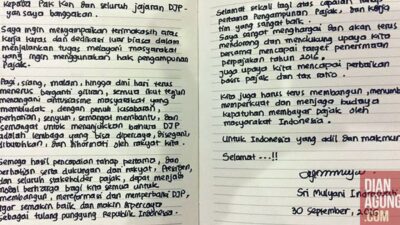 Kepada Pak Ken dan seluruh jajaran DJP
yang saya banggakan.
Saya ingin menyampaikan terimakasih atas
kerja keras dan dedikasi luar biasa dalam
menjalankan tugas melayani masyarakat
yang ingin menggunakan hak pengampunan
Pajak.
Pagi, siang, malam, hingga dini hari terus
menerus berganti giliran, semua ikut tekun
menangani antusiasme masyarakat yang
membludak, dengan penuh kesabaran
perhatian, senyum, semangat membantu, dan
semangat untuk menunjukkan bahwa DJP
adalah lembaga yang bisa dipercaya, disegani,
dibutuhkan dan dihormati oleh rakyat kita.
Semoga hasil pencapaian tahap pertama, dan
perhatian serta dukungan dari rakyat, Presiden,
dan seluruh stakeholder pajak, dapat menjadi
modal berharga bagi kita semua untuk
membangun, mereformasi dan memperbaiki DJP,
agar semakin baik dan makin dipercaya
sebagai tulang punggung Republik Indonesia.
Selamat sekali lagi atas capaian tahap
pertama Pengampunan Pajak, dan kerja
tim yang sangat baik.
Saya sangat menghargai dan akan terus
mendorong dan mendukung upaya kita
bersama mencapai target penerimaan
perpajakan tahun 2016,
juga upaya kita mencapai perbaikan
basis pajak dan tax ratio.
Kita juga harus terus membangun, menumbuh
memperkuat dan menjaga budaya
kepatuhan membayar pajak oleh
masyarakat Indonesia.
Untuk Indonesia yang adil dan makmur
Selamat ---!!
Sri Mulyani Indrawati
30 September, 2016
DIAN
AGUNG
.COM